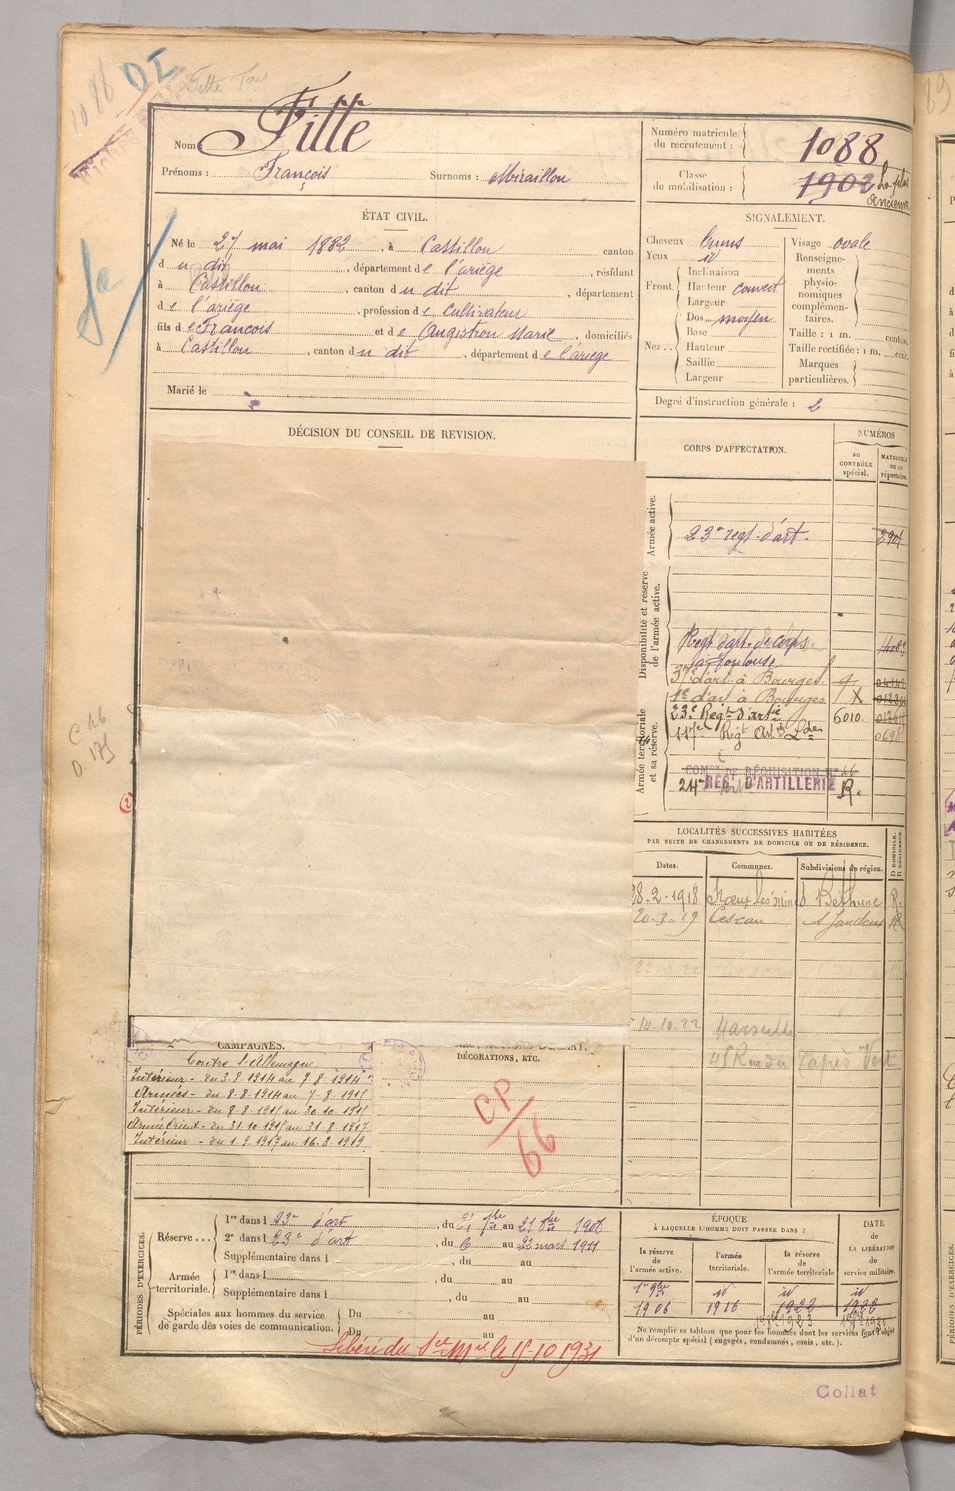 1088
DI
Nom : Fitte
Prénoms : François Surnoms : Miraillou
Numéro matricule du recrutement : 1088
Classe de mobilisation : 1902 La plus Ancienne
ÉTAT CIVIL.
Né le 27 mai 1882, à Castillon canton
du dit, département de l'ariège, résidant
à Castillon, canton du dit, département
de l'ariège, profession de cultivateur
fils de François et de Angistrou Marie, domiciliés
à Castillon, canton du dit, département de l'ariège
Marié le
SIGNALEMENT.
Cheveux bruns
Yeux id
Front.
Inclinaison
Hauteur couvert
Largeur
Nez..
Dos moyen
Base
Hauteur
Saillie
Largeur
Visage ovale
Renseignements physionomiques complémentaires.
Taille : 1 m. centim.
Taille rectifiée : 1 m. cent.
Marques particulières.
Degré d'instruction générale : 2
DÉCISION DU CONSEIL DE REVISION.
CORPS D'AFFECTATION.
NUMÉROS
au CONTRÔLE spécial.
MATRICULE ou du répertoire.
Armée active.
23e regt d'art.
Disponibilité et réserve de l'armée active.
Regt d'art. de corps
à Toulouse
37e d'art à Bourges
1e d'art à Bourges X
23e Regt d'artie 6010
Armée territoriale et sa réserve.
117e Regt Artie Lde
COMon DE RÉQUISITION N° 46
24e REGt D'ARTILLERIE R.
C 46
D 175
(2)
LOCALITÉS SUCCESSIVES HABITÉES
PAR SUITE DE CHANGEMENTS DE DOMICILE OU DE RÉSIDENCE.
Dates. Communes. Subdivisions de région. D DOMICILE. R RÉSIDENCE.
28-2-1918 Nœux les mines Béthune R.
20-3-19 Cescau St Gaudens
10.10.22 Marseille
45 Rue du Tapis Vert
CAMPAGNES.
Contre l'Allemagne
Intérieur - du 3.8.1914 au 7.8.1914
Armées - du 8.8.1914 au 7.8.1915
Intérieur - du 8.8.1915 au 30.10.1915
Armée Orient - du 31.10.1915 au 31.8.1917
Intérieur - du 1.9.1917 au 16.3.1919
DÉCORATIONS, ETC.
CP/66
PÉRIODES D'EXERCICES.
Réserve ...
1re dans le 23e d'art, du 21 au 21 1908
2e dans le 23e d'art, du 6 au 22 mars 1911
Supplémentaire dans l , du au
Armée territoriale.
1re dans l , du au
Supplémentaire dans l , du au
Spéciales aux hommes du service de garde des voies de communication.
Du au
Du au
Libéré du Sce Mre le 15-10-1931
ÉPOQUE
À LAQUELLE L'HOMME DOIT PASSER DANS :
la réserve de l'armée active.
l'armée territoriale.
la réserve de l'armée territoriale
DATE de LA LIBÉRATION du service militaire.
1er 9bre 1906
id 1916
id 1922
id
1923
Ne remplir ce tableau que pour les hommes dont les services font l'objet
d'un décompte spécial (engagés, condamnés, omis, etc.).
Collat